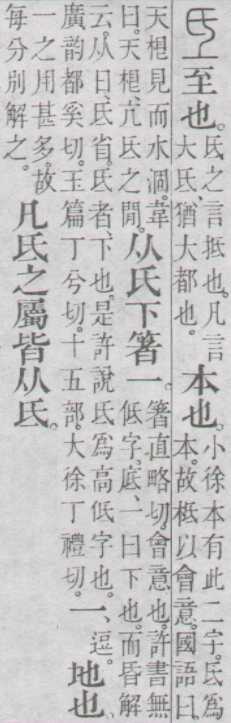 至也。氐之言抵也。凡言大氐、猶大都也。本也。小徐本有此二字。氐爲本。故柢以會意。國語曰。
天根見而水涸。韋曰。天根、亢氐之閒。从氏下箸一。箸直略切。會意也。許書無低字。底、一曰下也。而昏解
云。从日、氐省。氐者、下也。是許說氐爲高低字也。廣韵都奚切。玉篇丁兮切。十五部。大徐丁禮切。一、逗。地也。
一之用甚多。故每分別解之。凡氐之屬皆从氐。